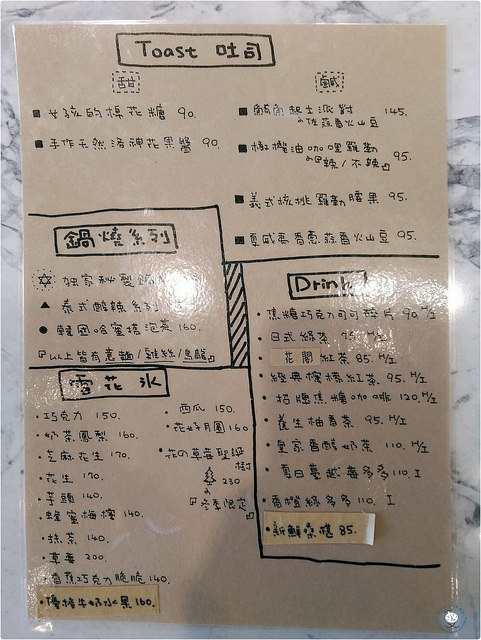 Toast 吐司
甜
■ 女孩的棉花糖 90.
■ 手作天然洛神花果醬 90.
鹹
起士派對 145.
佐蒜香火山豆
■ 橄欖油咖哩羅勒 95.
辣/不辣
■ 義式核桃羅勒腰果 95.
■ 夏威夷香蔥蒜香火山豆 95.
鍋燒系列
獨家秘製
▲ 泰式酸辣系列
● 韓國哈蜜塔泡菜 160.
『以上皆有意麵/雞絲/烏龍』
雪花氷
•巧克力 150.
•奶茶鳳梨 160.
•芝麻花生 170.
•花生 170.
•芋頭 140.
•蜂蜜梅檸 140.
•抹茶 140.
•草莓 200.
•香蕉巧克力脆脆 140.
•優格牛奶水果 160.
•西瓜 150.
•花好月圓 160
•花の草莓聖誕樹
230
『冬季限定』
Drink
•焦糖巧克力可可碎片 90.H/I
•日式綠茶 75. H/I
花閣紅茶 85. H/I
•經典檸檬紅茶 95. H/I
•招牌焦糖咖啡 120. H/I
•養生柚香茶 95. H/I
•皇家香醇奶茶 110. H/I
•夏日蔓越莓多多 110. I
•香橙綠多多 110. I
•新鮮桑椹 85.